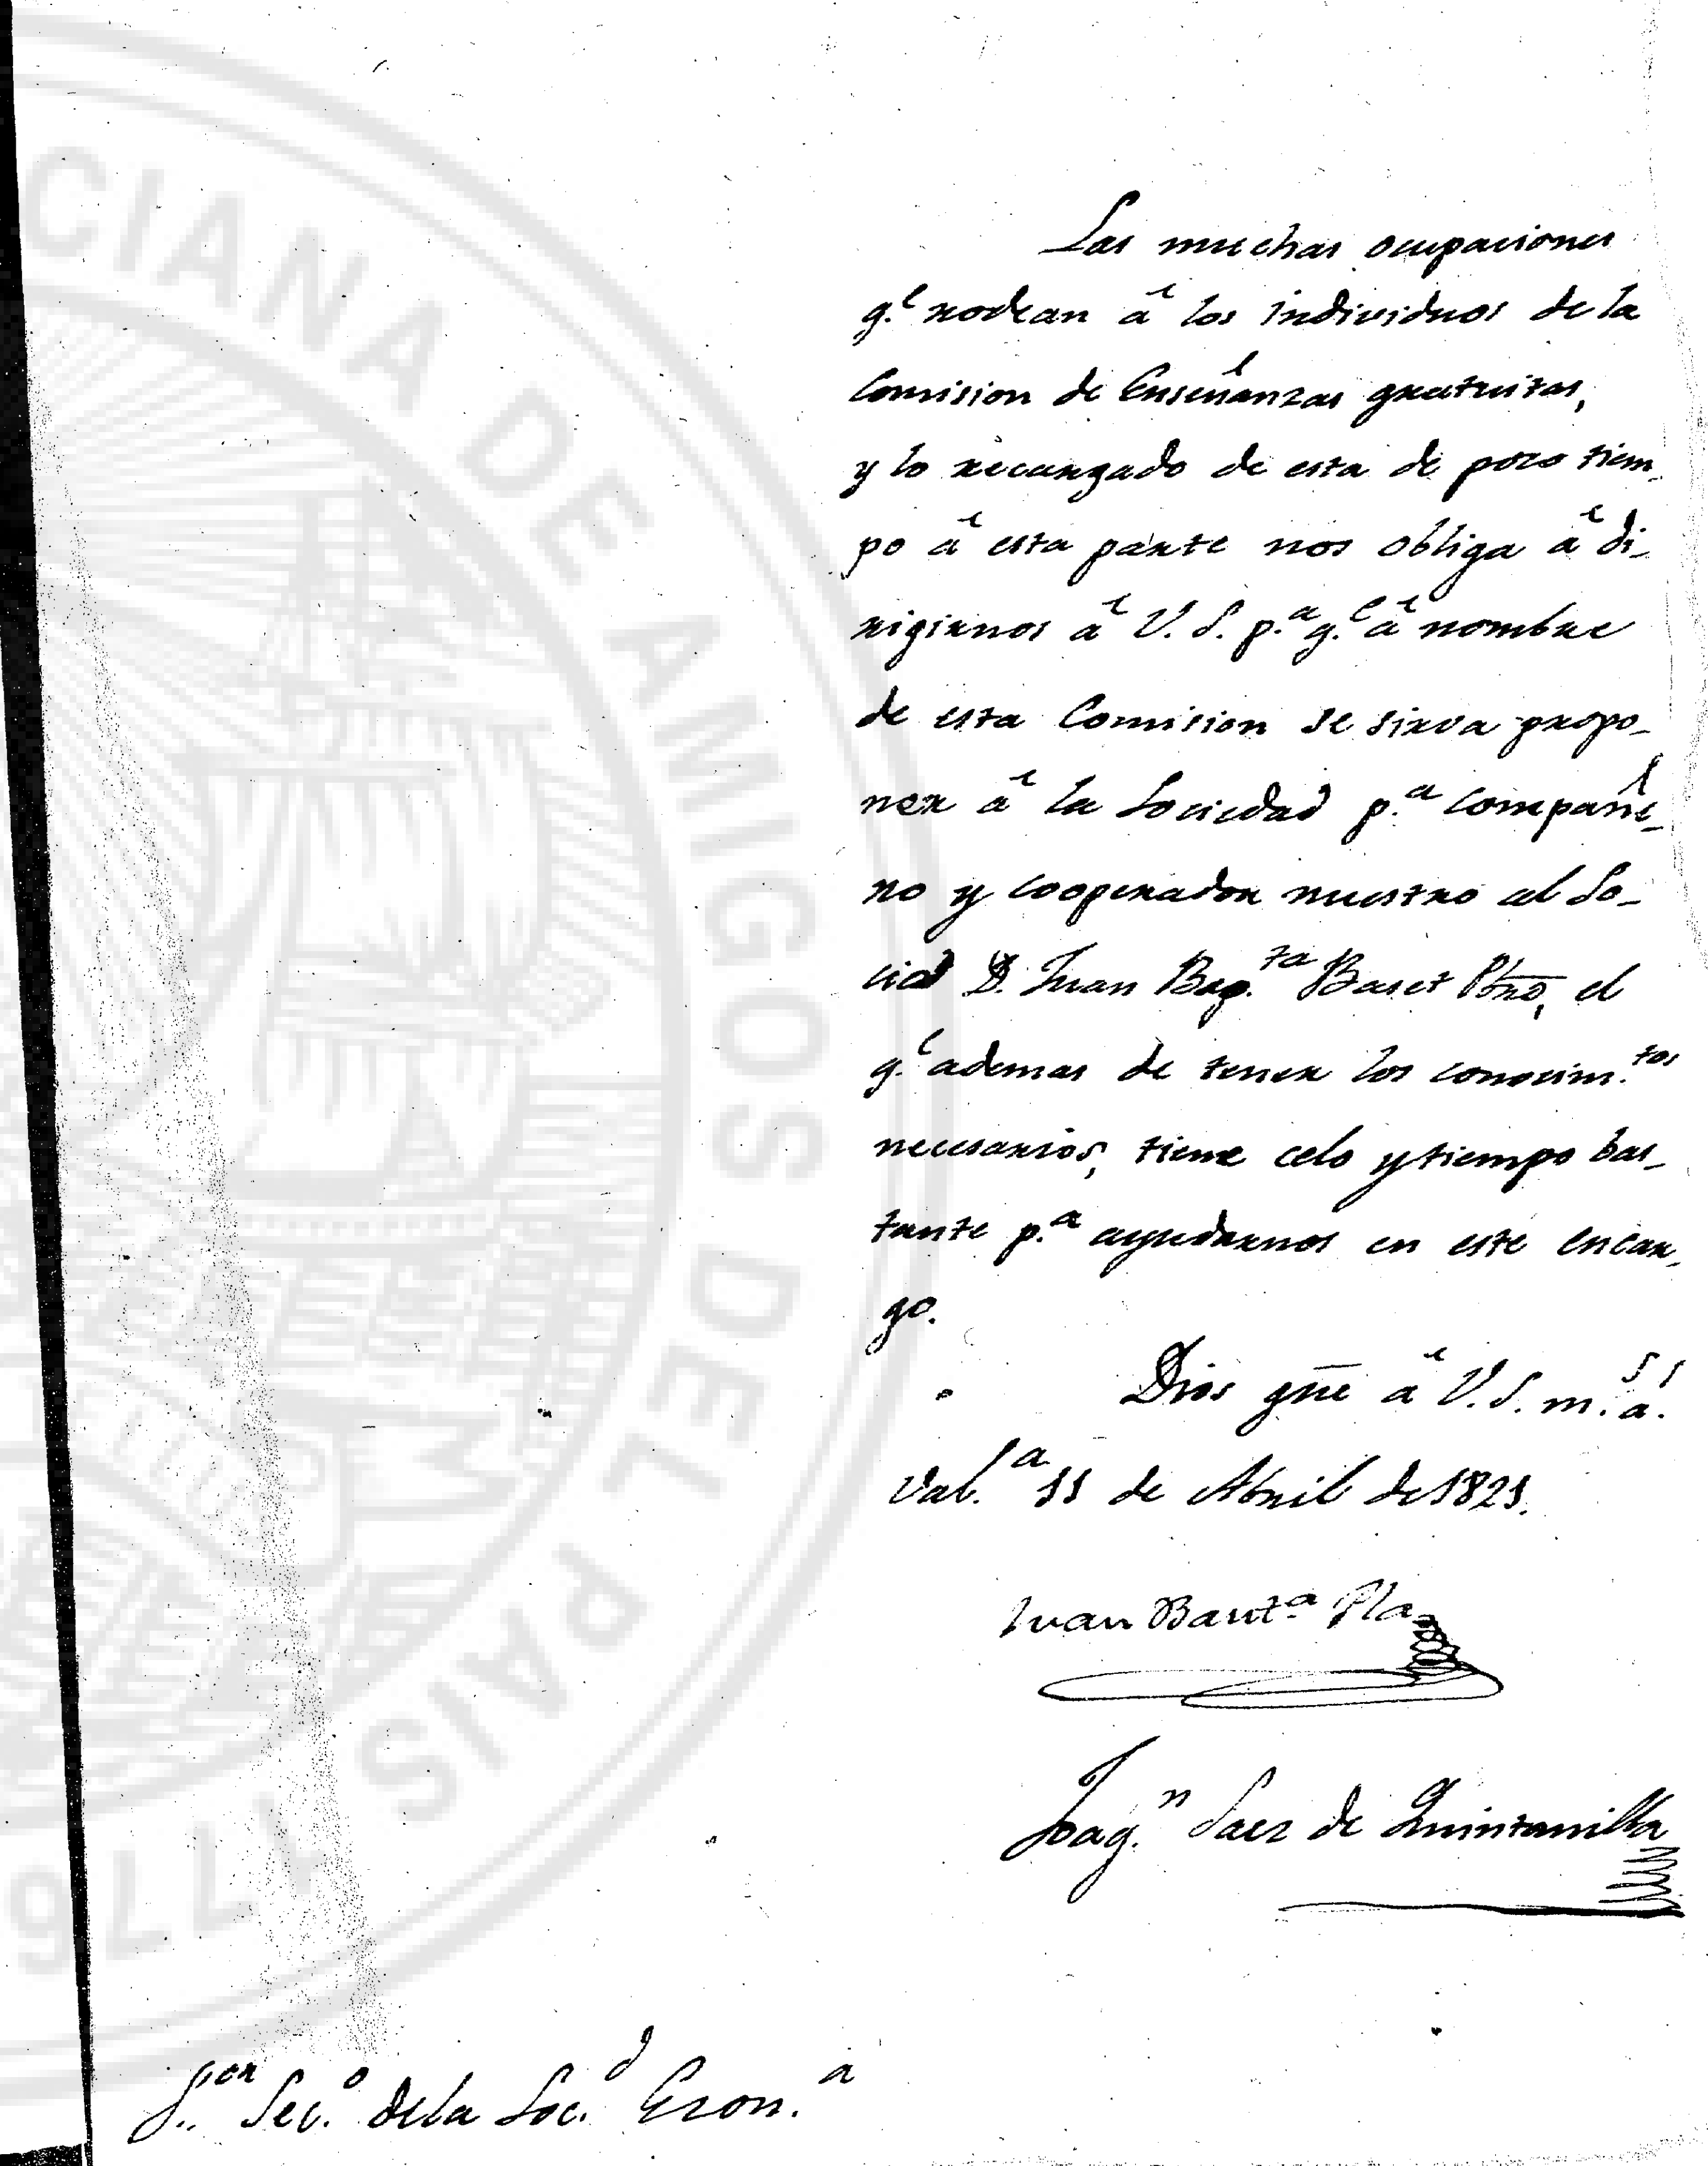 Las muchas ocupaciones
q.e rodean á los individuos de la
Comision de Enseñanzas gratuitas,
y lo recargado de esta de poco tiem-
po á esta parte nos obliga á di-
rigirnos á V. S. p.a q.e á nombre
de esta Comision se sirva propo-
ner á la Sociedad p.a compañe-
ro y cooperador nuestro al So-
cio D. Juan Bap.ta Baset Pbrō, el
q.e ademas de tener los conocim.tos
necesarios, tiene celo y tiempo bas-
tante p.a ayudarnos en este encar-
go.
Dios gūe á V. S. m.s a.s
Val.a 11 de Abril de 1821.
Juan Baut.a Pla
Joaq.n Saez de Quintanilla
S.or Sec.o de la Soc.d Econ.a
CIANA DE AMIGOS DEL PAIS
1776